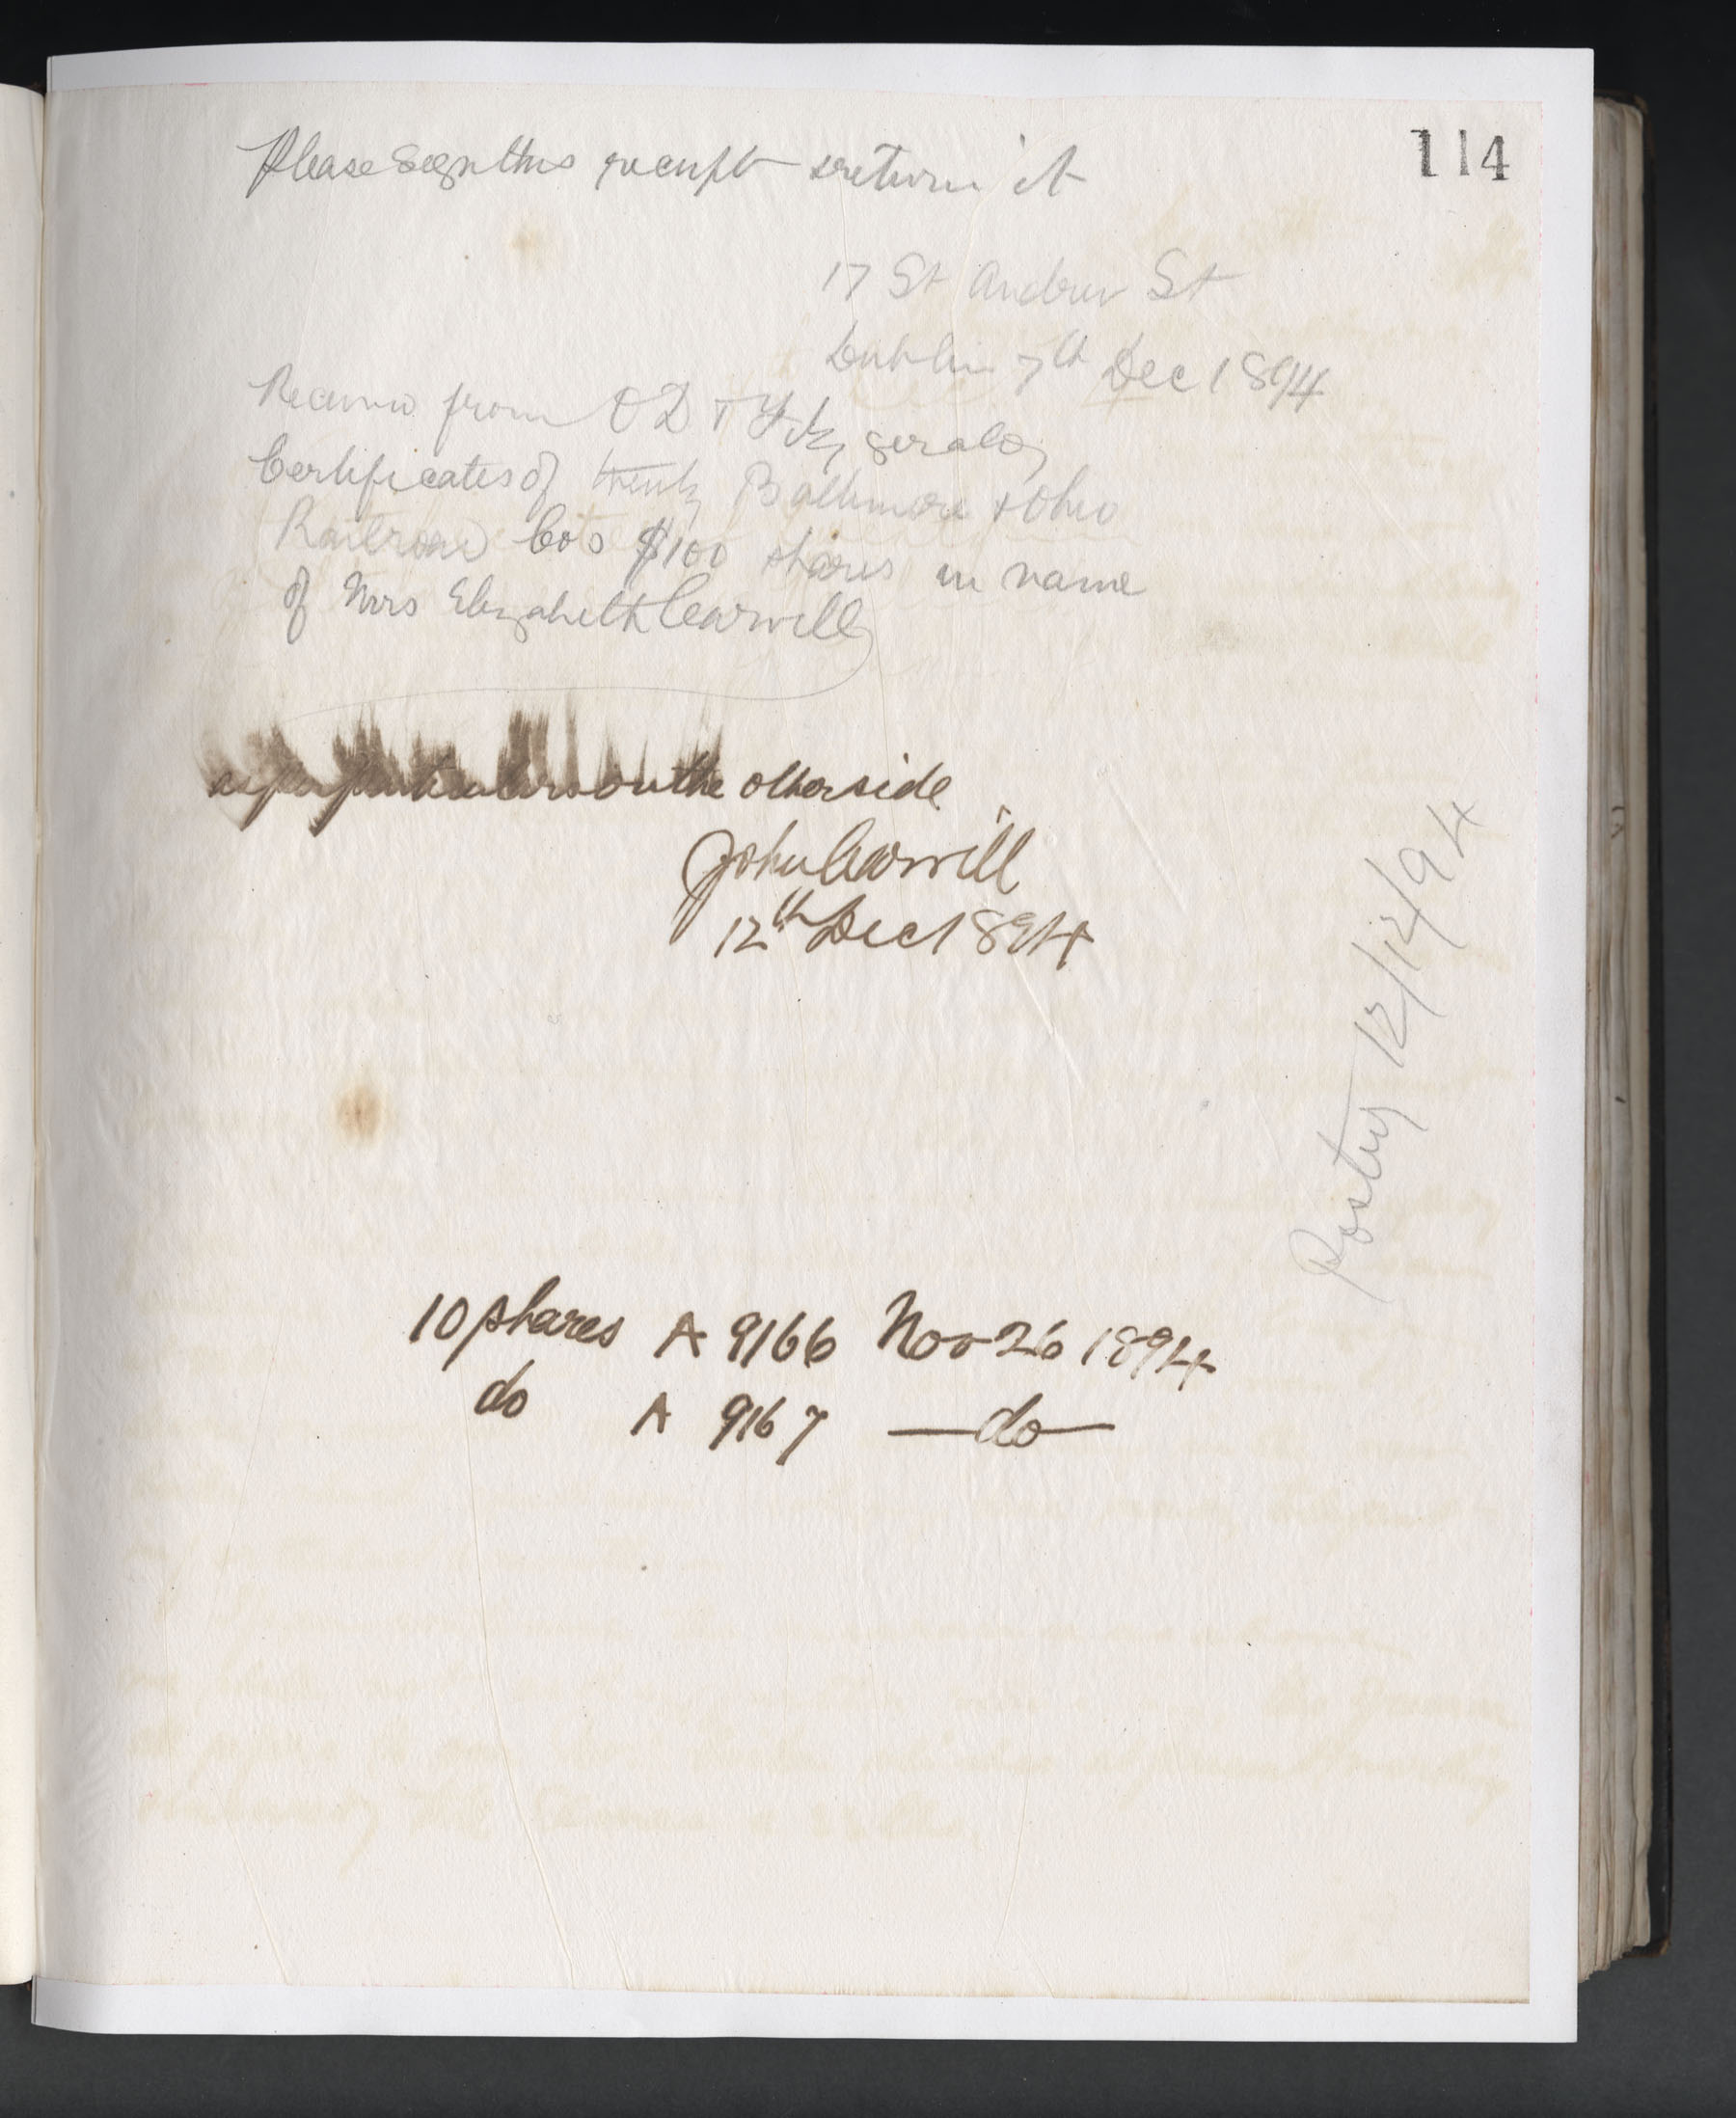 114
Please Sign this receipt & return it
17 St Andrew St
Dublin 7th Dec 1894
Received from O D & T Fitzgerald
Certificates of twenty Baltimore & Ohio
Railroad Cos $100 shares in name
of Mrs Elizabeth Carvill
as per particulars on the other side
John Carvill
12th Dec 1894
Posted 12/12/94
10 shares A 9166 Nov 26 1894
do A 9167 — do —